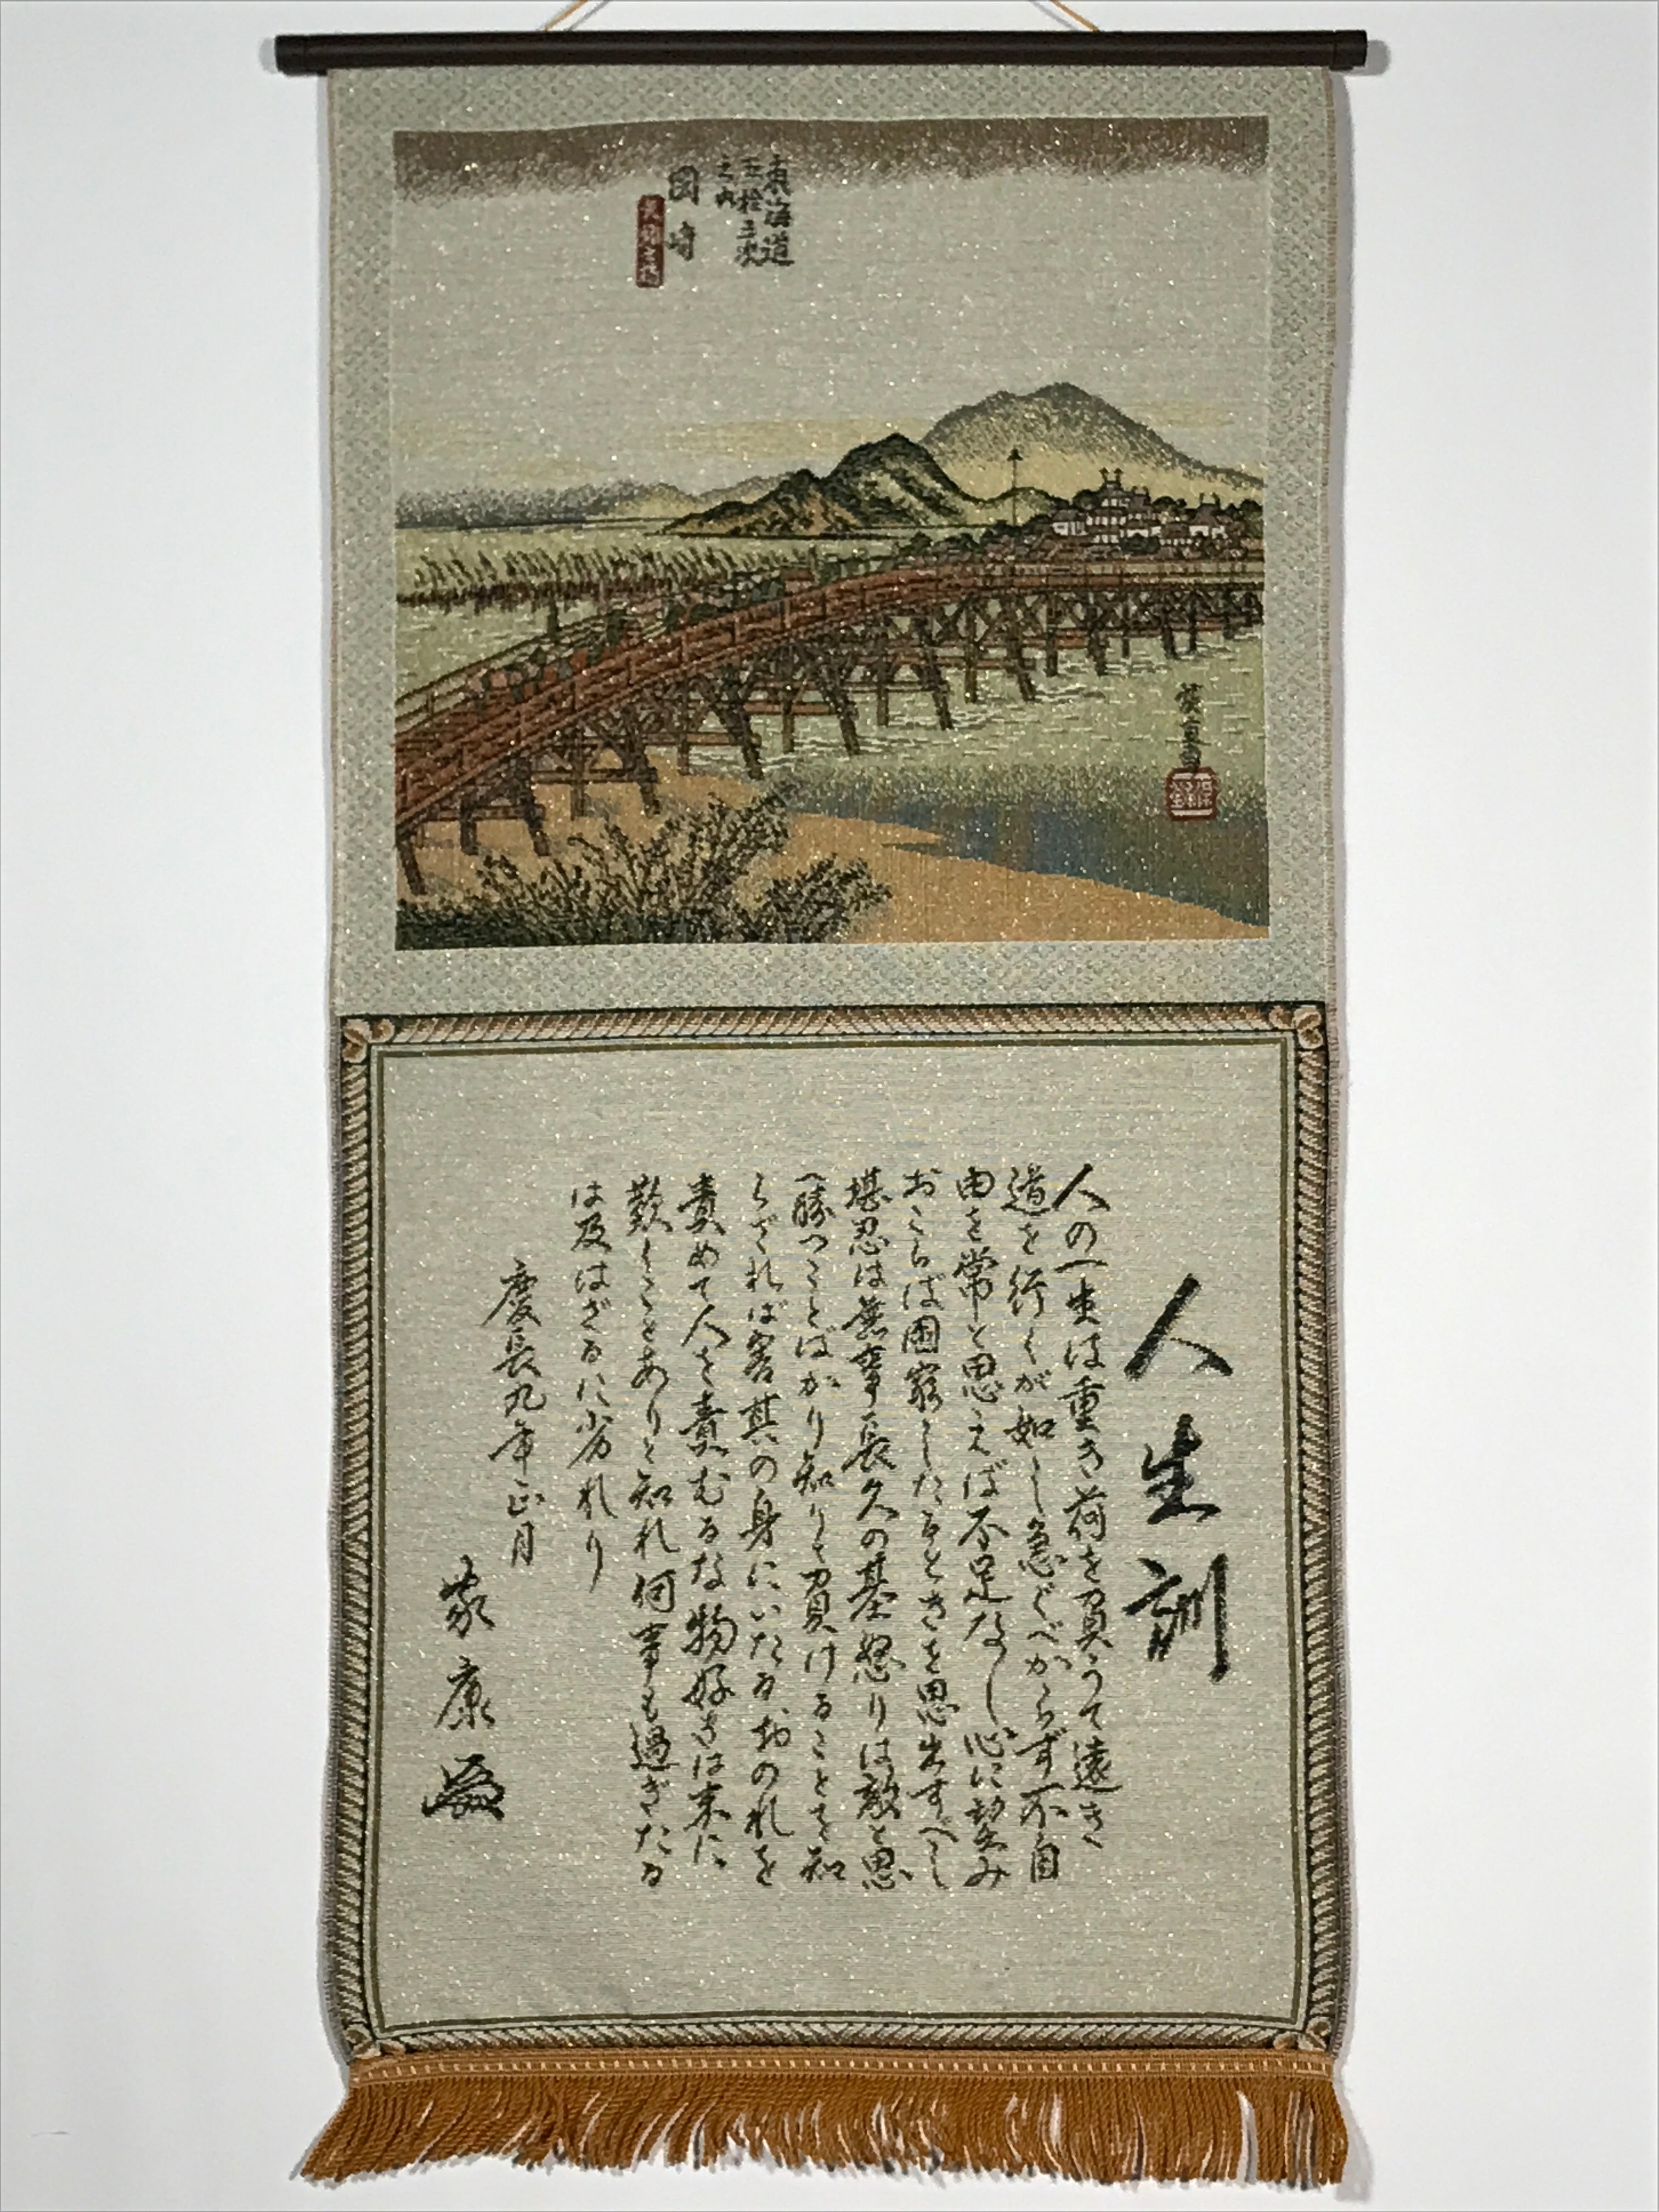 東海道
五拾三次
之内
岡崎
矢矧之橋
廣重画
人生訓
人の一生は重き荷を負うて遠き
道を行くが如し急ぐべからず不自
由を常と思えば不足なし心に望み
おこらば困窮したるときを思出すべし
堪忍は無事長久の基怒りは敵と思
へ勝つことばかり知りて負けることを知
らざれば害其の身にいたるおのれを
責めて人を責むるな物好きは末に
歎くことありと知れ何事も過ぎたる
は及はざるに劣れり
慶長九年正月
家康